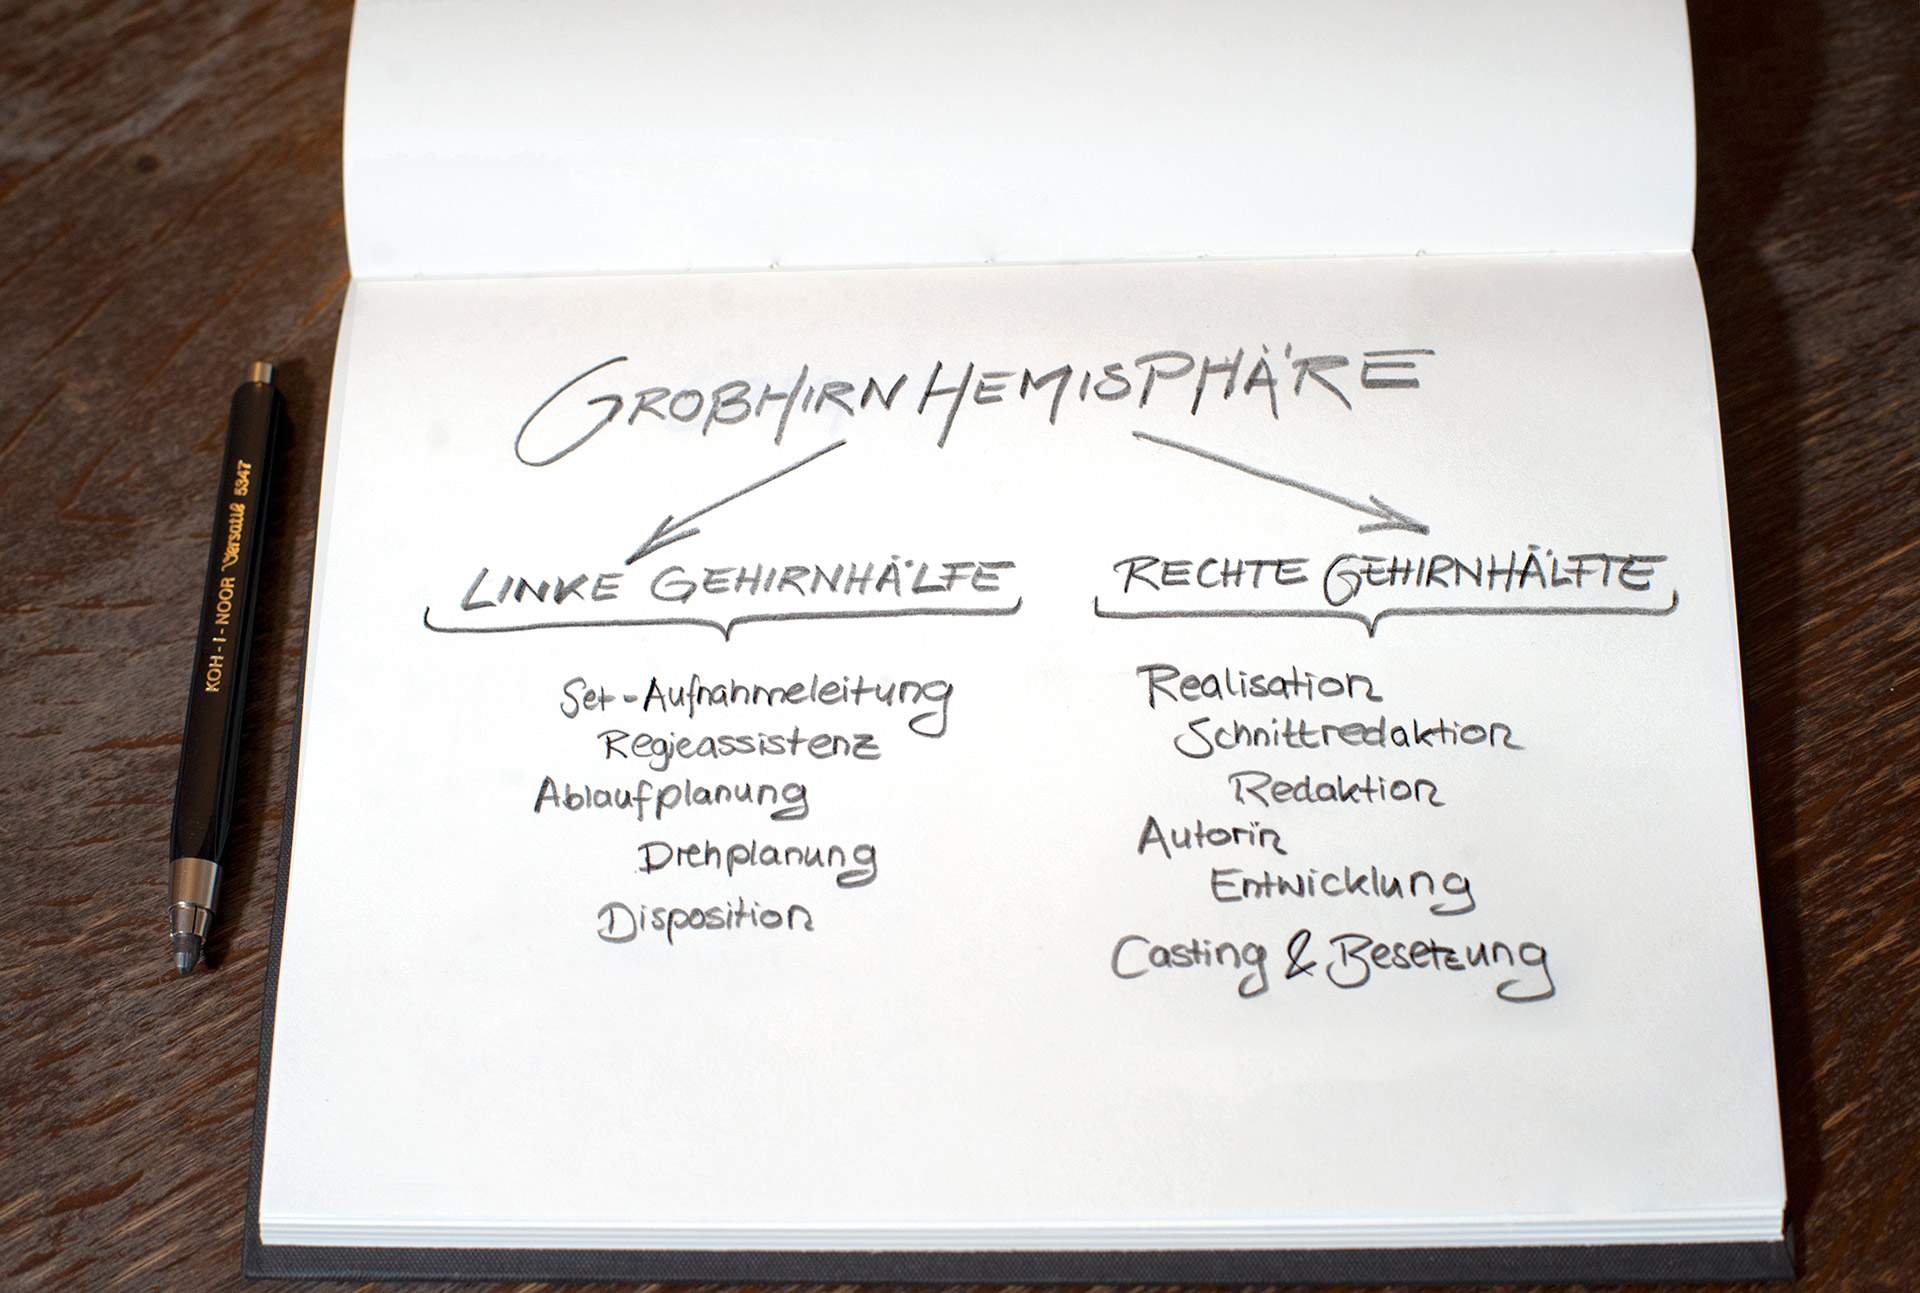 GROßHIRNHEMISPHÄRE
LINKE GEHIRNHÄLFE
Set-Aufnahmeleitung
Regieassistenz
Ablaufplanung
Drehplanung
Disposition
RECHTE GEHIRNHÄLFTE
Realisation
Schnittredaktion
Redaktion
Autorin
Entwicklung
Casting & Besetzung
KOH-I-NOOR Versatil 5347